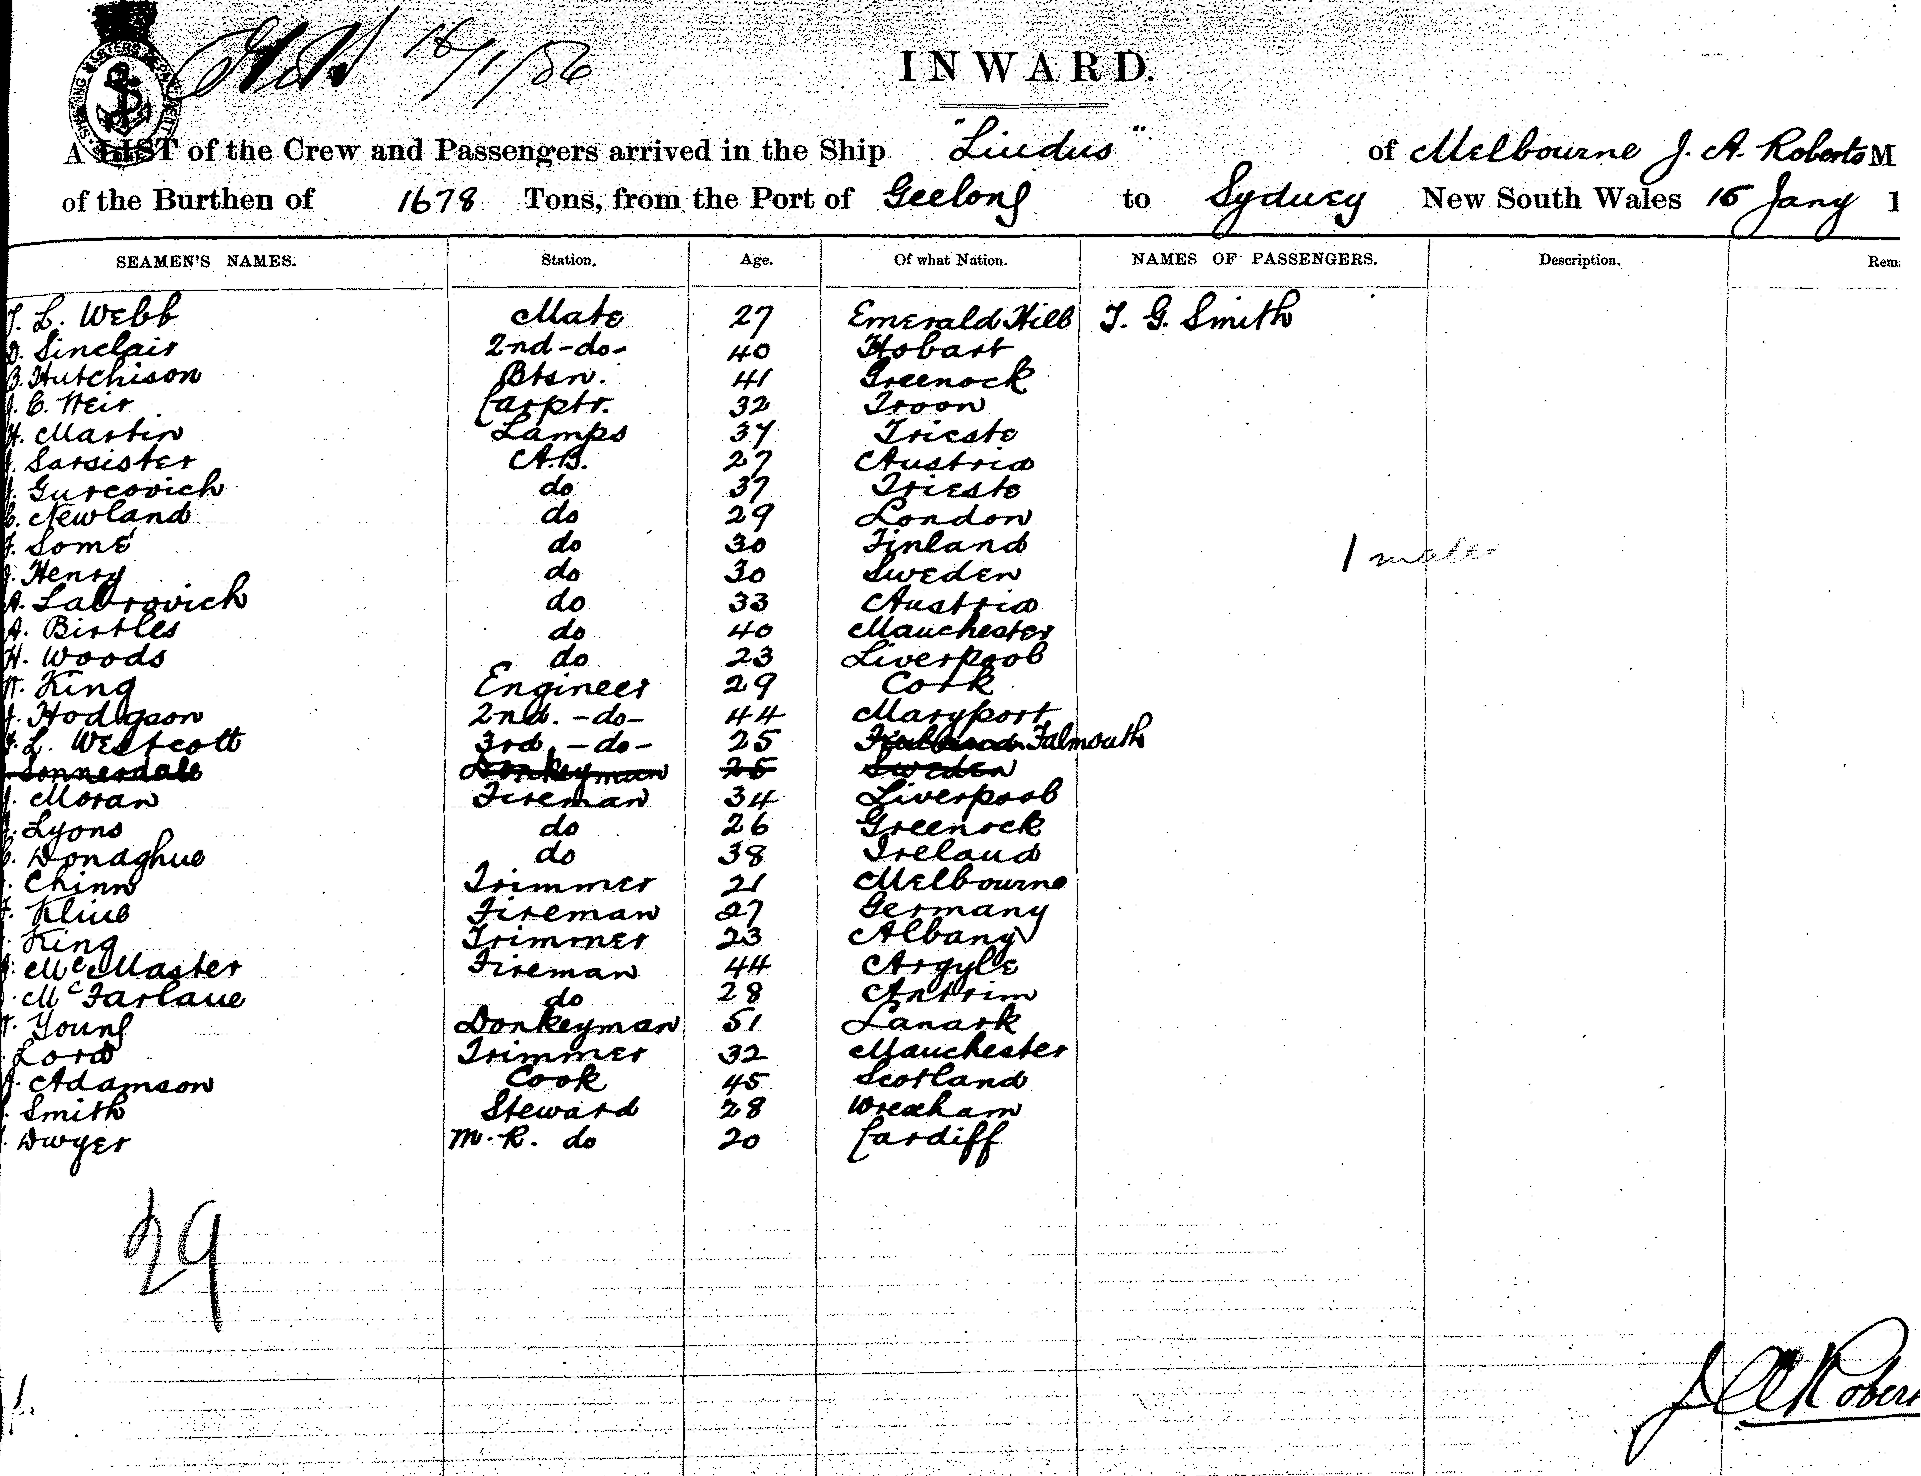 18/1/86
INWARD.
A LIST of the Crew and Passengers arrived in the Ship "Lindus" of Melbourne J. A. Roberts M
of the Burthen of 1678 Tons, from the Port of Geelong to Sydney New South Wales 15 Jany 1
SEAMEN'S NAMES. Station. Age. Of what Nation. NAMES OF PASSENGERS. Description. Rem
L. Webb Mate 27 Emerald Hill T. G. Smith
D. Sinclair 2nd -do- 40 Hobart
B. Hutchison Btsn. 41 Greenock
C. Weir Carptr. 32 Troon
H. Martin Lamps 37 Trieste
Sarsister A.B. 27 Austria
Gurcovich do 37 Trieste
C. Newland do 29 London
Somé do 30 Finland
Henry do 30 Sweden
A. Labrovich do 33 Austria
A. Birtles do 40 Manchester
H. Woods do 23 Liverpool
W. King Engineer 29 Cork
Hodgson 2nd. -do- 44 Maryport
L. Westcott 3rd -do- 25 Falmouth
Sonnesdale Donkeyman 25 Sweden
Moran Fireman 34 Liverpool
Lyons do 26 Greenock
C. Donaghue do 38 Ireland
Chinn Trimmer 21 Melbourne
F. Kline Fireman 27 Germany
King Trimmer 23 Albany
McMaster Fireman 44 Argyle
McFarlane do 28 Antrim
Young Donkeyman 51 Lanark
Lord Trimmer 32 Manchester
Adamson Cook 45 Scotland
Smith Steward 28 Wrexham
Dwyer M.R. do 20 Cardiff
1 male
29
1.
J A Robert